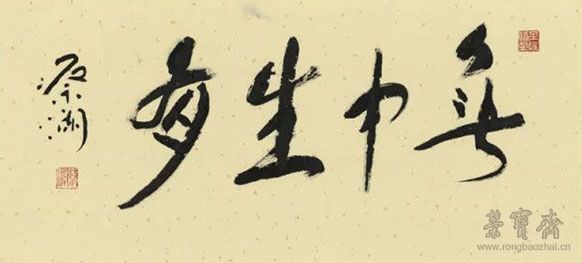 無中生有
榮寶齋
www.rongbaozhai.cn